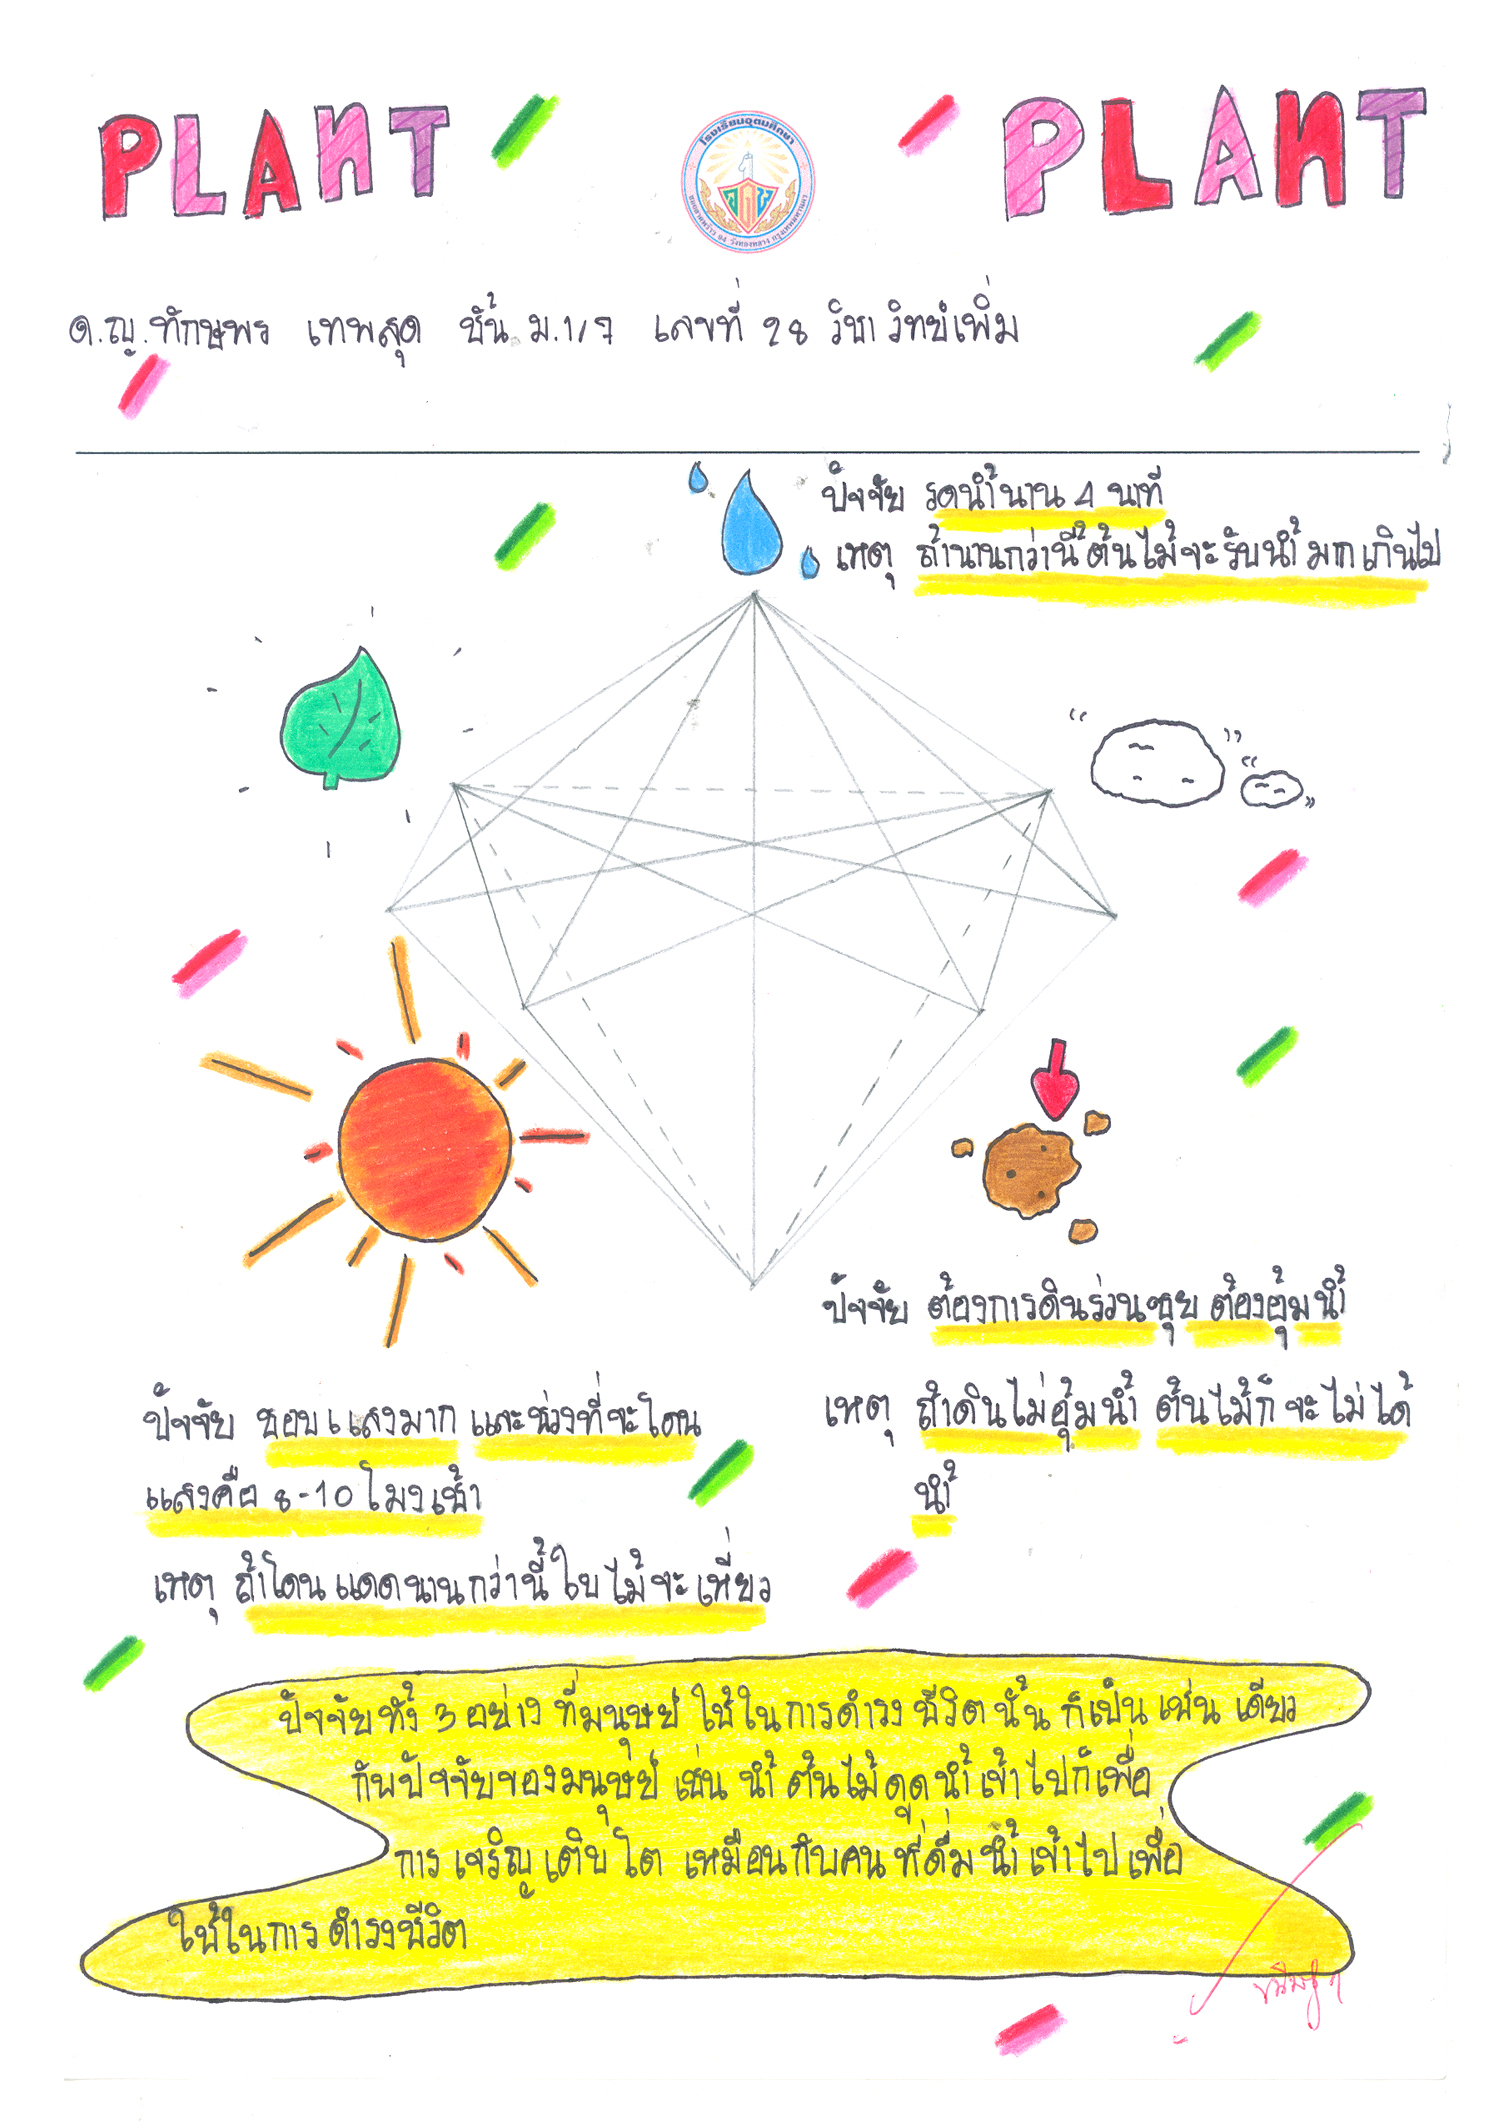 PLANT
PLANT
โรงเรียนอุดมศึกษา
ซอยลาดพร้าว 94 วังทองหลาง กรุงเทพมหานคร
ด.ญ.ทักษพร เทพสุด ชั้น ม.1/7 เลขที่ 28 วิชา วิทย์เพิ่ม
ปัจจัย รดน้ำนาน 4 นาที
เหตุ ถ้านานกว่านี้ต้นไม้จะรับน้ำมากเกินไป
ปัจจัย ต้องการดินร่วนซุย ต้องอุ้มน้ำ
เหตุ ถ้าดินไม่อุ้มน้ำ ต้นไม้ก็จะไม่ได้
น้ำ
ปัจจัย ชอบแสงมาก และช่วงที่จะโดน
แสงคือ 8-10 โมงเช้า
เหตุ ถ้าโดนแดดนานกว่านี้ใบไม้จะเหี่ยว
ปัจจัยทั้ง 3 อย่าง ที่มนุษย์ ใช้ในการดำรงชีวิตนั้น ก็เป็นเช่นเดียว
กับปัจจัยของมนุษย์ เช่น น้ำ ต้นไม้ดูดน้ำเข้าไปก็เพื่อ
การเจริญเติบโต เหมือนกับคนที่ดื่มน้ำเข้าไปเพื่อ
ใช้ในการดำรงชีวิต